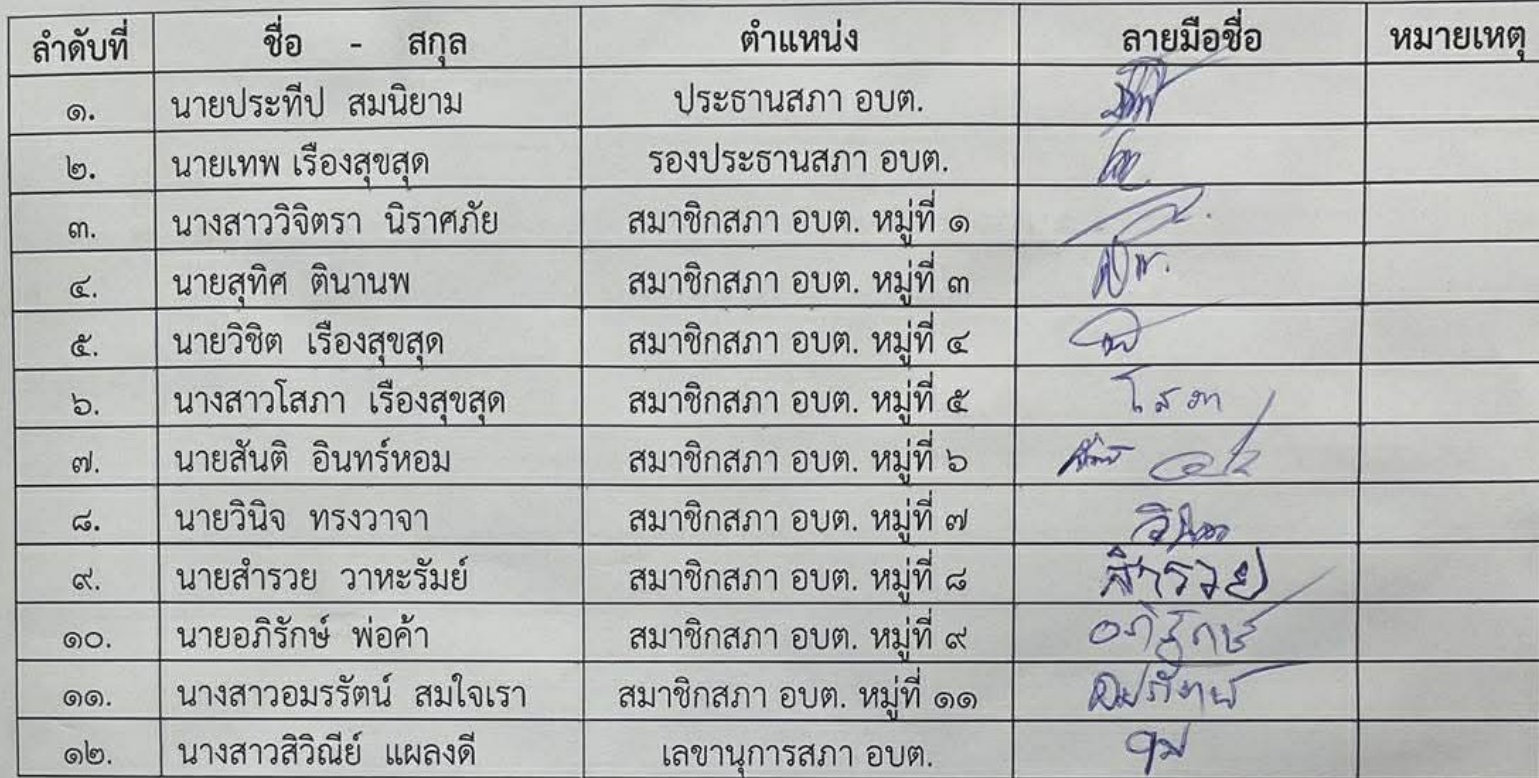 ลำดับที่ ชื่อ - สกุล ตำแหน่ง ลายมือชื่อ หมายเหตุ
๑. นายประทีป สมนิยาม ประธานสภา อบต.
๒. นายเทพ เรืองสุขสุด รองประธานสภา อบต.
๓. นางสาววิจิตรา นิราศภัย สมาชิกสภา อบต. หมู่ที่ ๑
๔. นายสุทิศ ตินานพ สมาชิกสภา อบต. หมู่ที่ ๓
๕. นายวิชิต เรืองสุขสุด สมาชิกสภา อบต. หมู่ที่ ๔
๖. นางสาวโสภา เรืองสุขสุด สมาชิกสภา อบต. หมู่ที่ ๕ โสภา
๗. นายสันติ อินทร์หอม สมาชิกสภา อบต. หมู่ที่ ๖
๘. นายวินิจ ทรงวาจา สมาชิกสภา อบต. หมู่ที่ ๗
๙. นายสำรวย วาหะรัมย์ สมาชิกสภา อบต. หมู่ที่ ๘ สำรวย
๑๐. นายอภิรักษ์ พ่อค้า สมาชิกสภา อบต. หมู่ที่ ๙ อภิรักษ์
๑๑. นางสาวอมรรัตน์ สมใจเรา สมาชิกสภา อบต. หมู่ที่ ๑๑
๑๒. นางสาวสิวิณีย์ แผลงดี เลขานุการสภา อบต.